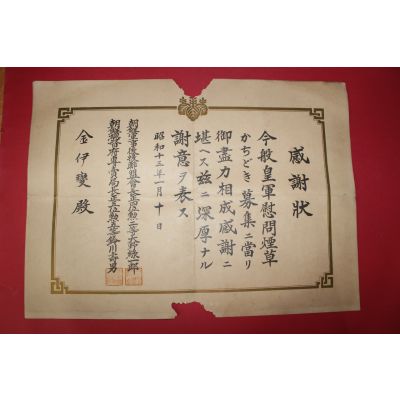 感謝狀
今般皇軍慰問煙草
かちどき募集ニ當リ
御盡力相成感謝ニ
堪ヘス玆ニ深厚ナル
謝意ヲ表ス
昭和十三年一月十日
朝鮮軍事後援聯盟會長正四位勳二等大野綠一郎
朝鮮總督府專賣局長正五位勳五等鈴川壽男
金伊變殿